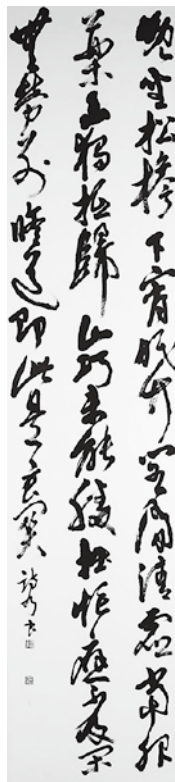 晚坐松檐下宵眠竹閣間清虛當服
藥幽獨抵歸山巧未能勝拙忙應不及閑
無勞別修道即此是玄關